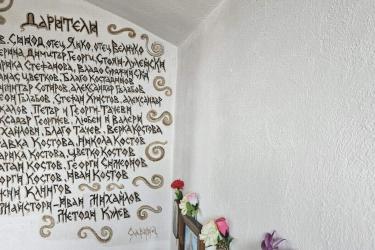 Дарители
в. Синод, отец Янко, отец Величко
ерина Димитар Георги Стоян Лулейски
арика Стефанова, Владо Сиракински
анас Цветков, Благо Костадинов
имитар Сотиров, Александар Галабов
еги Галабов, Стефан Христов, Александар
акалов, Петар и Георги Тачеви
ександар Георгиев, Любен и Валери
ихайлови, Благо Тачев, Верка Костова
авка Костова, Никола Костов
арика Костова, Цветко Костов
атан Костов, Георги Симеонов
орги Костов, Иван Костов
Майстори – Иван Михайлов
Методи Кмев